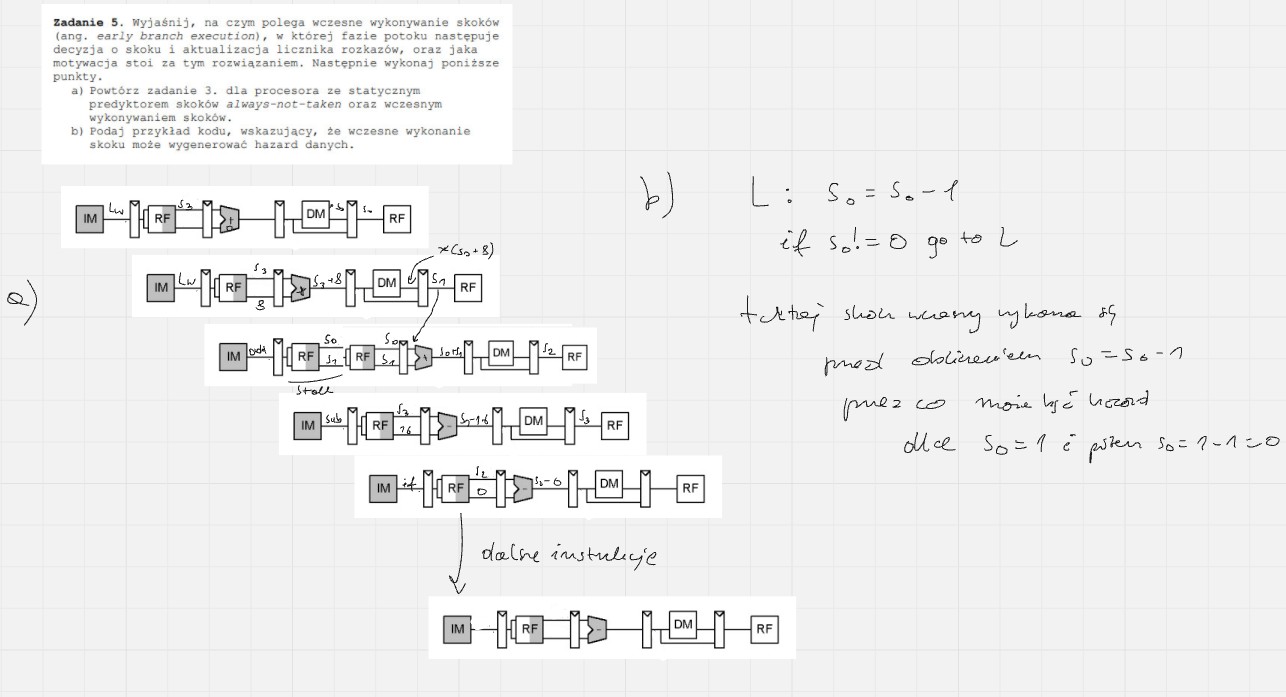 Zadanie 5. Wyjaśnij, na czym polega wczesne wykonywanie skoków
(ang. early branch execution), w której fazie potoku następuje
decyzja o skoku i aktualizacja licznika rozkazów, oraz jaka
motywacja stoi za tym rozwiązaniem. Następnie wykonaj poniższe
punkty.
a) Powtórz zadanie 3. dla procesora ze statycznym
predyktorem skoków always-not-taken oraz wczesnym
wykonywaniem skoków.
b) Podaj przykład kodu, wskazujący, że wczesne wykonanie
skoku może wygenerować hazard danych.
a)
IM Lw RF S3 DM S0 RF
x(s0+8)
IM Lw RF S3 8 + S3+8 DM S1 RF
IM RF S0 S1 RF S0 S1 + DM S2 RF
stall
IM sub RF S3 16 - DM S3 RF
IM if RF S2 0 - DM RF
dalsze instrukcje
IM RF - DM RF
b)
L: S0 = S0 - 1
if S0 != 0 go to L
tutaj skok wczesny
przed obliczeniem S0 = S0 - 1
przez co może być hazard
dla S0 = 1 i potem S0 = 1 - 1 = 0